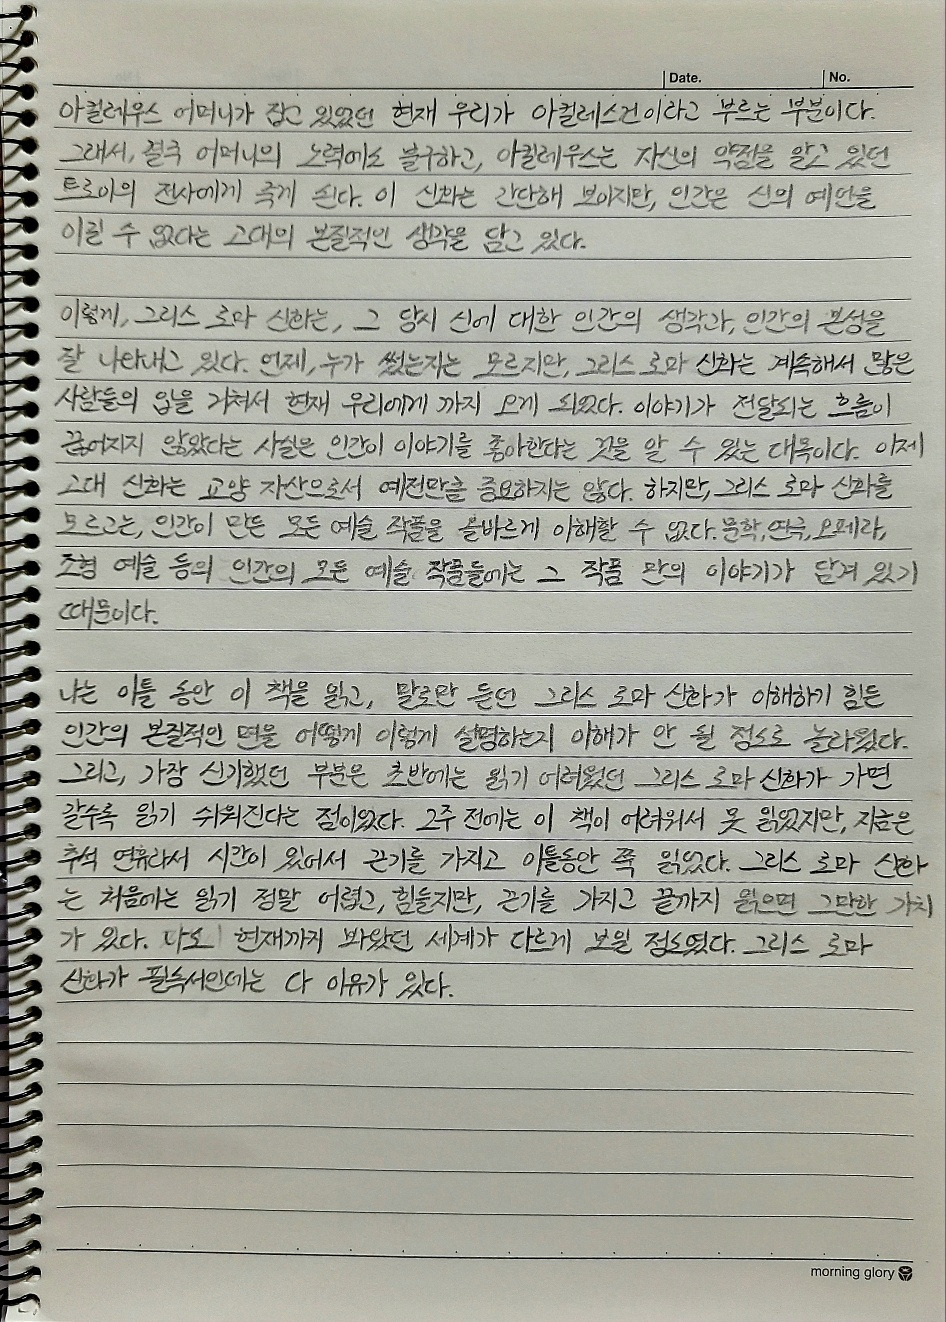 Date.
No.
아킬레우스 어머니가 잡고 있었던 현재 우리가 아킬레스건이라고 부르는 부분이다.
그래서, 결국 어머니의 노력에도 불구하고, 아킬레우스는 자신의 약점을 알고 있던
트로이의 전사에게 죽게 된다. 이 신화는 간단해 보이지만, 인간은 신의 예언을
이길 수 없다는 고대의 본질적인 생각을 담고 있다.
이렇게, 그리스 로마 신화는, 그 당시 신에 대한 인간의 생각과, 인간의 본성을
잘 나타내고 있다. 언제, 누가 썼는지는 모르지만, 그리스 로마 신화는 계속해서 많은
사람들의 입을 거쳐서 현재 우리에게 까지 오게 되었다. 이야기가 전달되는 흐름이
끊어지지 않았다는 사실은 인간이 이야기를 좋아한다는 것을 알 수 있는 대목이다. 이제
고대 신화는 교양 자산으로서 예전만큼 중요하지는 않다. 하지만, 그리스 로마 신화를
모르고는, 인간이 만든 모든 예술 작품을 올바르게 이해할 수 없다. 문학, 연극, 오페라,
조형 예술 등의 인간의 모든 예술 작품들에는 그 작품 만의 이야기가 담겨 있기
때문이다.
나는 이틀 동안 이 책을 읽고, 말로만 듣던 그리스 로마 신화가 이해하기 힘든
인간의 본질적인 면을 어떻게 이렇게 설명하는지 이해가 안 될 정도로 놀라웠다.
그리고, 가장 신기했던 부분은 초반에는 읽기 어려웠던 그리스 로마 신화가 가면
갈수록 읽기 쉬워진다는 점이었다. 2주 전에는 이 책이 어려워서 못 읽었지만, 지금은
추석 연휴라서 시간이 있어서 끈기를 가지고 이틀동안 쭉 읽었다. 그리스 로마 신화
는 처음에는 읽기 정말 어렵고, 힘들지만, 끈기를 가지고 끝까지 읽으면 그만한 가치
가 있다. 나도 현재까지 봐왔던 세계가 다르게 보일 정도였다. 그리스 로마
신화가 필독서인데는 다 이유가 있다.
morning glory